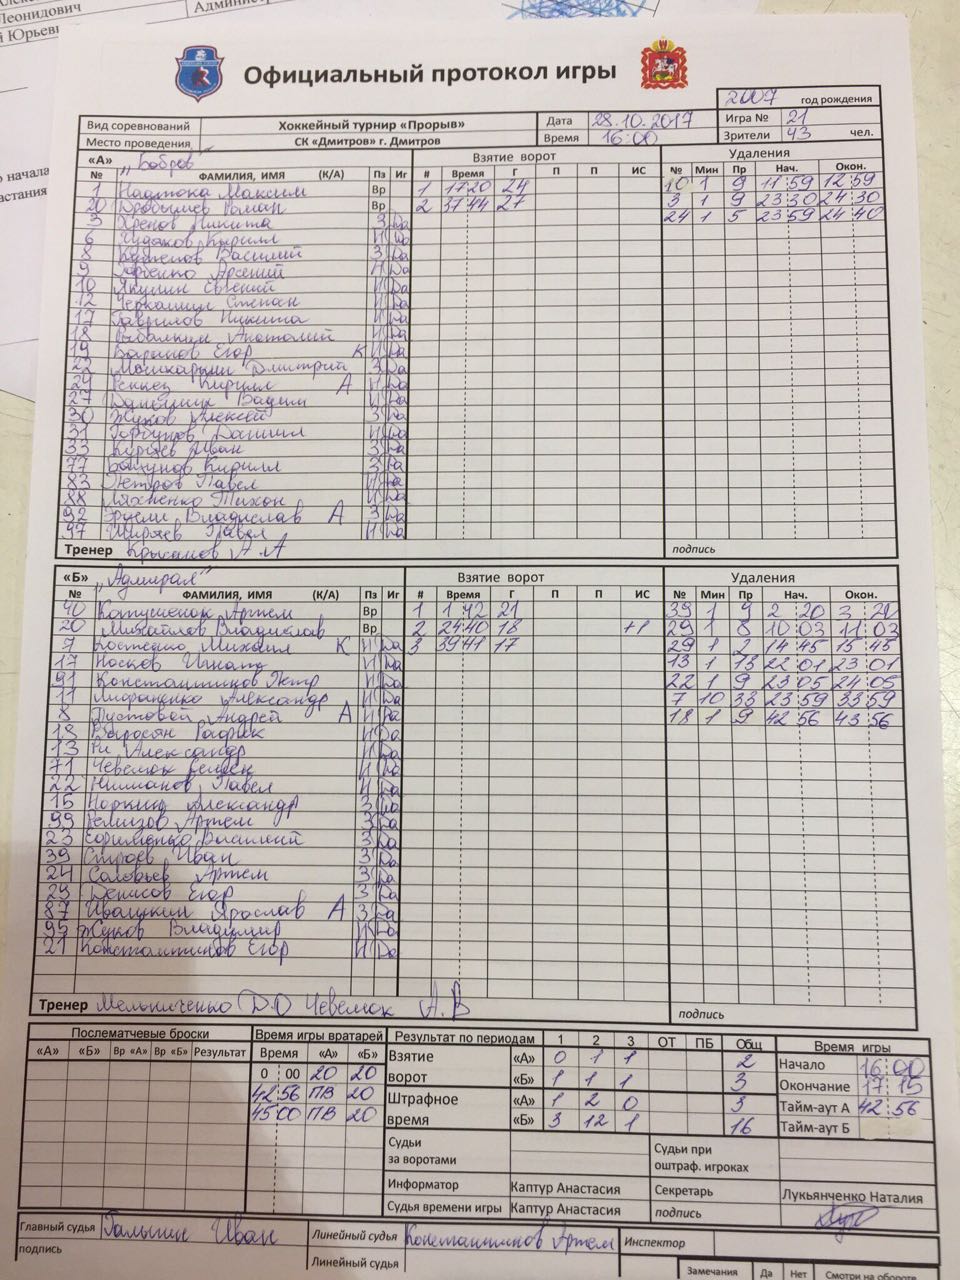 Леонидович
Админист
й Юрьев
о начала
астания
Официальный протокол игры
2007 год рождения
Вид соревнований Хоккейный турнир «Прорыв» Дата 28.10.2017 Игра № 21
Место проведения СК «Дмитров» г. Дмитров Время 16:00 Зрители 43 чел.
«А» "Бобров" Взятие ворот Удаления
№ ФАМИЛИЯ, ИМЯ (К/А) Пз Иг # Время Г П П ИС № Мин Пр Нач. Окон.
1 Надтока Максим Вр 1 17 20 24 10 1 9 11 59 12 59
20 Дробышев Роман Вр 2 37 44 27 3 1 9 23 30 24 30
3 Хренов Никита З Да 24 1 5 23 59 24 40
6 Худяков Кирилл Н Да
8 Василий З Да
9 Арсений Н Да
10 Якунин Евгений Н Да
12 Черкашин Степан Н Да
17 Гаврилов Никита Н Да
18 Рыбалкин Анатолий Н Да
19 Баринов Егор К Н Да
23 Дмитрий З Да
24 Кирилл А Н Да
27 Вадим Н Да
30 Жуков Алексей З Да
31 Горбунов Даниил Н Да
33 Иван З Да
77 Кирилл З Да
83 Петров Павел Н Да
88 Ляхненко Тихон Н Да
92 Владислав А З Да
97 Ширяев Павел Н Да
Тренер А.А подпись
«Б» "Адмирал" Взятие ворот Удаления
№ ФАМИЛИЯ, ИМЯ (К/А) Пз Иг # Время Г П П ИС № Мин Пр Нач. Окон.
40 Артем Вр 1 1 42 21 39 1 9 2 20 3 20
20 Михайлов Владислав Вр 2 24 40 18 +1 29 1 8 10 03 11 03
7 Костенко Михаил К Н Да 3 39 41 17 29 1 2 14 45 15 45
17 Носков Игнат Н Да 13 1 13 22 01 23 01
91 Константинов Петр Н Да 22 1 9 23 05 24 05
11 Александр Н Да 7 10 33 23 59 33 59
8 Пустовой Андрей А Н Да 18 1 9 42 56 43 56
18 Н Да
13 Ри Александр Н Да
71 Чевемок Н Да
22 Павел Н Да
15 Норкин Александр З Да
99 Ремизов Артем З Да
23 З Да
39 Иван З Да
24 Соловьев Артем З Да
29 Денисов Егор З Да
87 Ивашкин Ярослав А З Да
95 Жуков Владимир Н Да
21 Константинов Егор Н Да
Тренер Мельниченко Д.О Чевемок А.В подпись
Послематчевые броски Время игры вратарей Результат по периодам 1 2 3 ОТ ПБ Общ Время игры
«А» «Б» Вр «А» Вр «Б» Результат Время «А» «Б»
Взятие ворот «А» 0 1 1 2 Начало 16 00
0 00 20 20 «Б» 1 1 1 3 Окончание 17 15
42 56 ПВ 20 Штрафное время «А» 1 2 0 3 Тайм-аут А 42 56
45 00 ПВ 20 «Б» 3 12 1 16 Тайм-аут Б
Судьи за воротами Судьи при оштраф. игроках
Информатор Каптур Анастасия Секретарь Лукьянченко Наталия
Судья времени игры Каптур Анастасия подпись
Главный судья Галыгин Иван Линейный судья Константинов Артем Инспектор
подпись Линейный судья
Замечания Да Нет Смотри на обороте